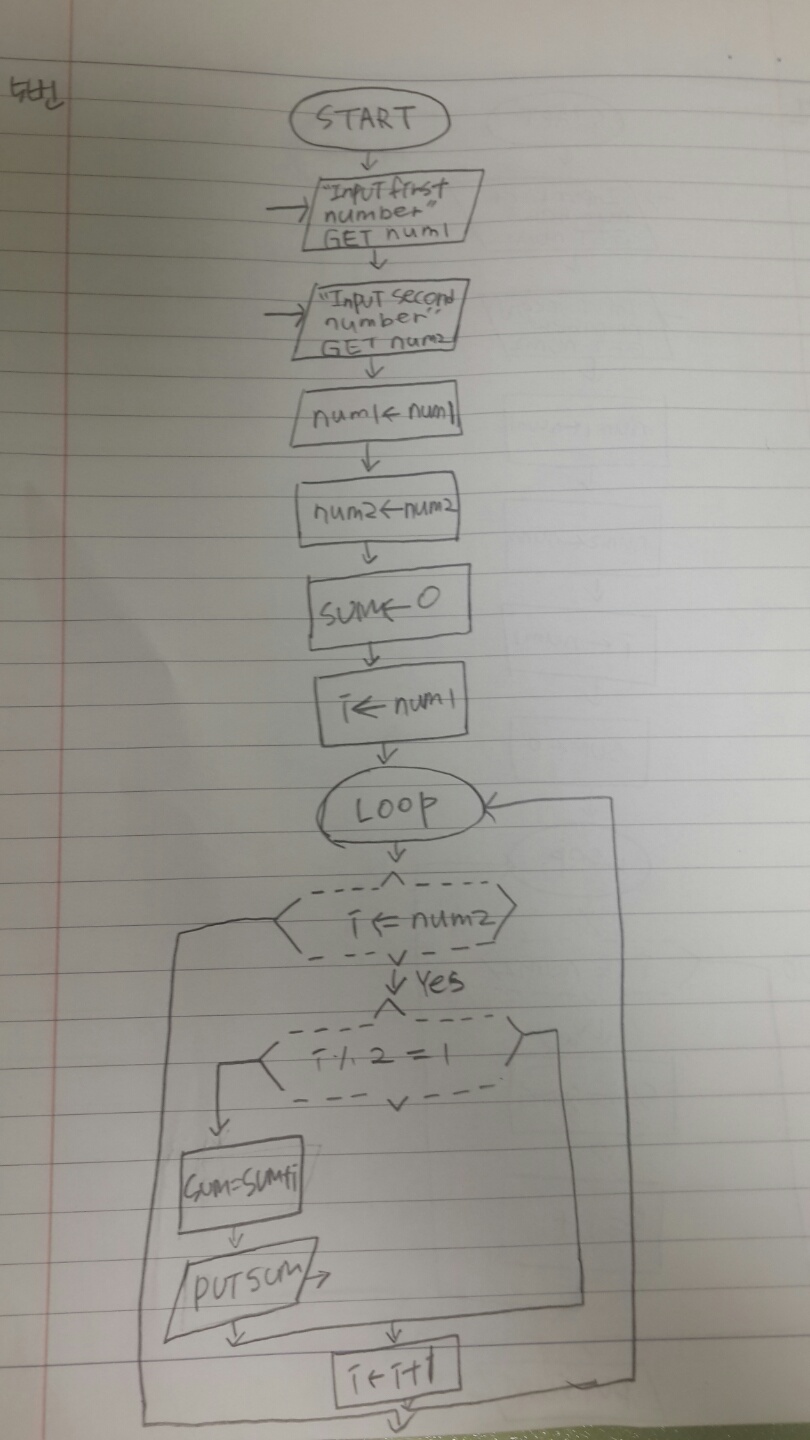 4번
START
"Input first
number"
GET num1
"Input second
number"
GET num2
num1 ← num1
num2 ← num2
SUM ← 0
i ← num1
LOOP
i <= num2
Yes
i % 2 = 1
SUM=SUM+i
PUT SUM
i ← i+1